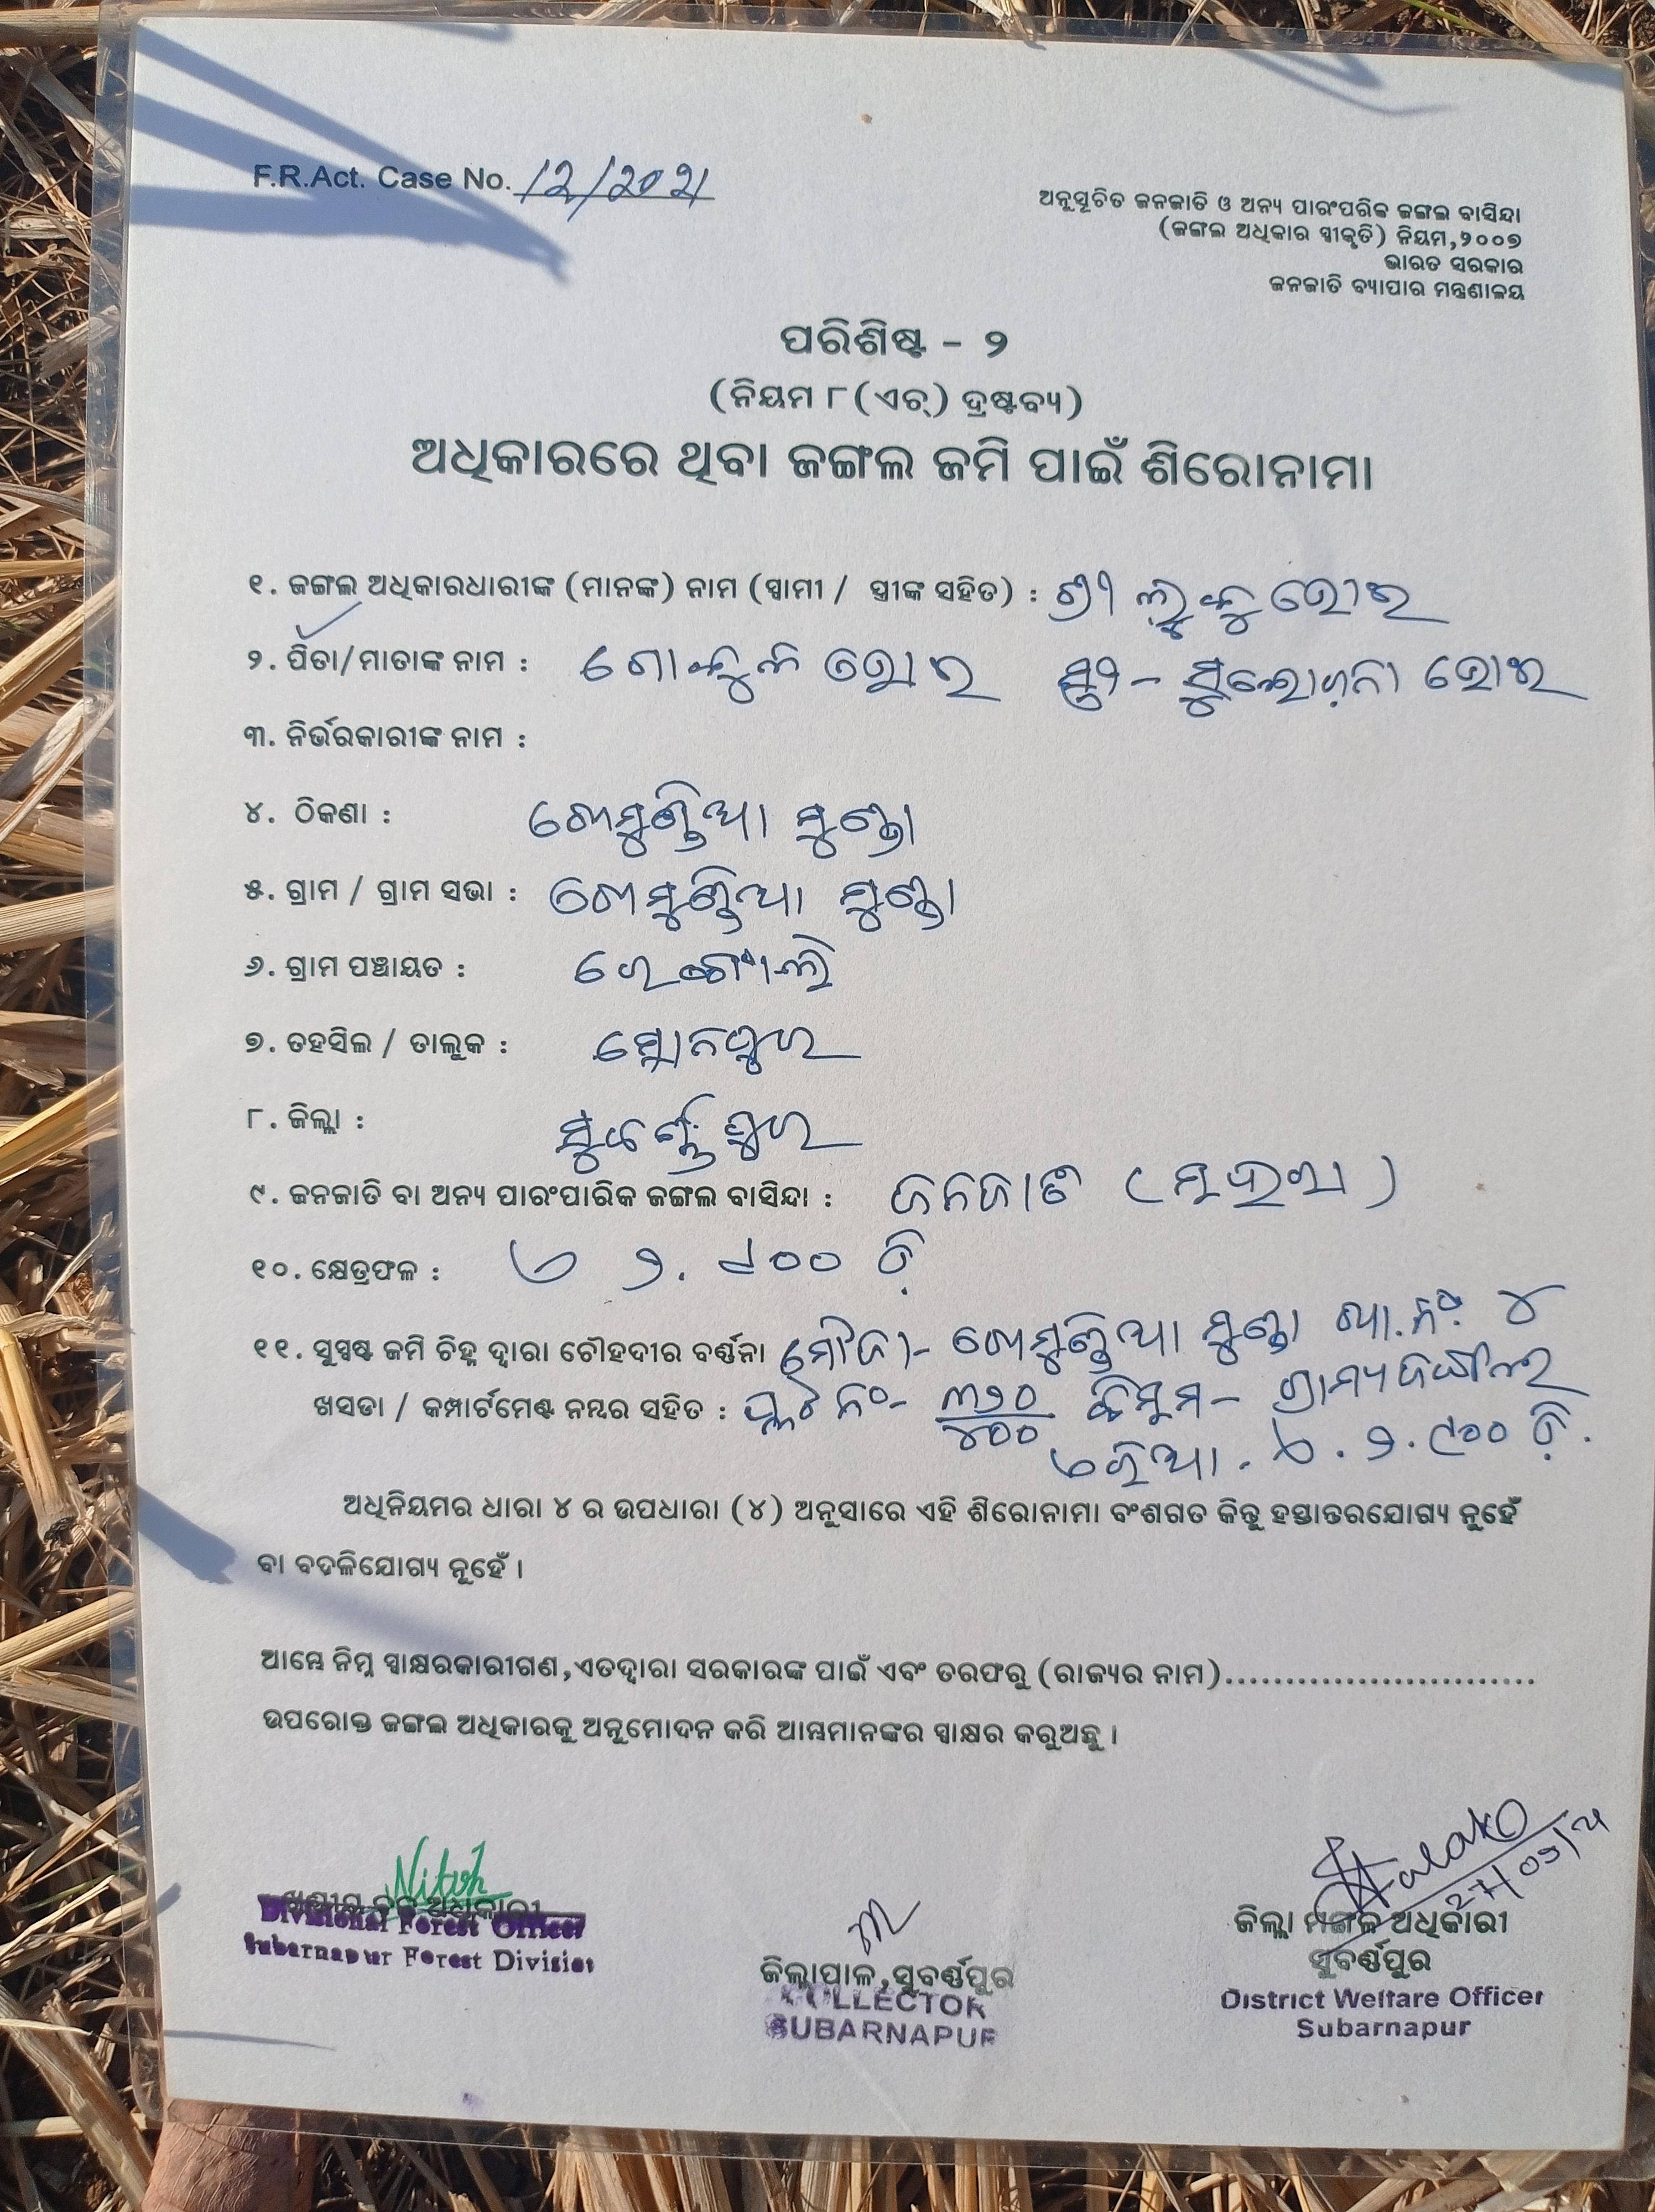 F.R.Act. Case No. 12/2021
ଅନୁସୂଚିତ ଜନଜାତି ଓ ଅନ୍ୟ ପାରଂପରିକ ଜଙ୍ଗଲ ବାସିନ୍ଦା
(ଜଙ୍ଗଲ ଅଧିକାର ସ୍ୱୀକୃତି) ନିୟମ,୨୦୦୭
ଭାରତ ସରକାର
ଜନଜାତି ବ୍ୟାପାର ମନ୍ତ୍ରଣାଳୟ
ପରିଶିଷ୍ଟ - ୨
(ନିୟମ ୮(ଏଚ୍) ଦ୍ରଷ୍ଟବ୍ୟ)
ଅଧିକାରରେ ଥିବା ଜଙ୍ଗଲ ଜମି ପାଇଁ ଶିରୋନାମା
୧. ଜଙ୍ଗଲ ଅଧିକାରଧାରୀଙ୍କ (ମାନଙ୍କ) ନାମ (ସ୍ୱାମୀ / ସ୍ତ୍ରୀଙ୍କ ସହିତ) : ଶ୍ରୀ ଭୋଇ
୨. ପିତା/ମାତାଙ୍କ ନାମ : ଗୋକୁଳ ଭୋଇ ସ୍ତ୍ରୀ - ଭୋଇ
୩. ନିର୍ଭରକାରୀଙ୍କ ନାମ :
୪. ଠିକଣା : ମୁଣ୍ଡା
୫. ଗ୍ରାମ / ଗ୍ରାମ ସଭା : ମୁଣ୍ଡା
୬. ଗ୍ରାମ ପଞ୍ଚାୟତ :
୭. ତହସିଲ / ତାଲୁକ : ସୋନପୁର
୮. ଜିଲ୍ଲା : ସୁବର୍ଣ୍ଣପୁର
୯. ଜନଜାତି ବା ଅନ୍ୟ ପାରଂପାରିକ ଜଙ୍ଗଲ ବାସିନ୍ଦା : ଜନଜାତି
୧୦. କ୍ଷେତ୍ରଫଳ : ୨.୯୦୦ ଡ଼ି
୧୧. ସୁସ୍ପଷ୍ଟ ଜମି ଚିହ୍ନ ଦ୍ୱାରା ଚୌହଦୀର ବର୍ଣ୍ଣନା ମୌଜା- ମୁଣ୍ଡା ଖା.ନଂ ୪
ଖସଡା / କମ୍ପାର୍ଟମେଣ୍ଟ ନମ୍ବର ସହିତ : ପ୍ଲଟ ନଂ- ୩୨୦/୪୦୦ କିସମ- ଗ୍ରାମ୍ୟଜଙ୍ଗଲ
୨.୯୦୦ ଡ଼ି.
ଅଧିନିୟମର ଧାରା ୪ ର ଉପଧାରା (୪) ଅନୁସାରେ ଏହି ଶିରୋନାମା ବଂଶଗତ କିନ୍ତୁ ହସ୍ତାନ୍ତରଯୋଗ୍ୟ ନୁହେଁ
ବା ବଦଳିଯୋଗ୍ୟ ନୁହେଁ ।
ଆମ୍ଭେ ନିମ୍ନ ସ୍ୱାକ୍ଷରକାରୀଗଣ,ଏତଦ୍ୱାରା ସରକାରଙ୍କ ପାଇଁ ଏବଂ ତରଫରୁ (ରାଜ୍ୟର ନାମ)..........................
ଉପରୋକ୍ତ ଜଙ୍ଗଲ ଅଧିକାରକୁ ଅନୁମୋଦନ କରି ଆମ୍ଭମାନଙ୍କର ସ୍ୱାକ୍ଷର କରୁଅଛୁ ।
Nitish
Divisional Forest Officer
Subarnapur Forest Division
ଜିଲ୍ଲାପାଳ,ସୁବର୍ଣ୍ଣପୁର
COLLECTOR
SUBARNAPUR
ଜିଲ୍ଲା ମଙ୍ଗଳ ଅଧିକାରୀ
ସୁବର୍ଣ୍ଣପୁର
District Welfare Officer
Subarnapur